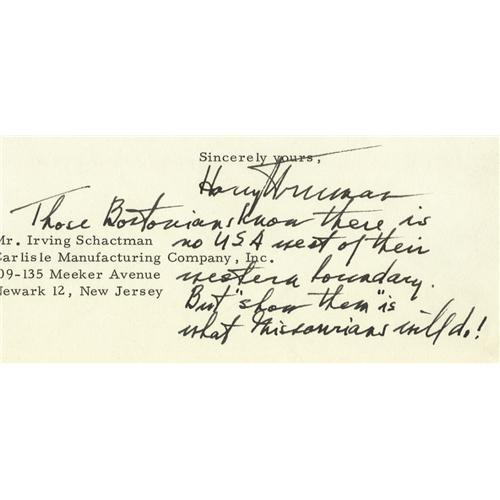 Sincerely yours,
Harry Truman
Those Bostonians know there is
Mr. Irving Schactman
no USA west of their
Carlisle Manufacturing Company, Inc.
western boundary.
09-135 Meeker Avenue
Newark 12, New Jersey
But "show them" is
what Missourians will do!